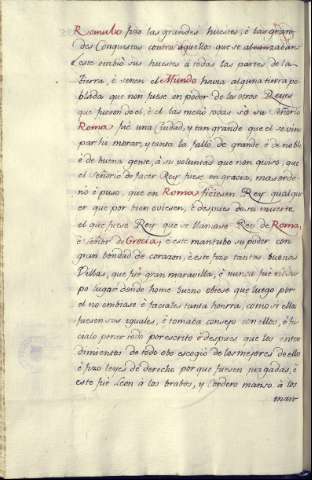 Romulo fizo las grandes huestes, é las gran-
des Conquistas contra aquellos que se alzaban
é este embió sus huestes á todas las partes de la
tierra, é si en el Mundo havia alguna tierra po-
blada que non fuese en poder de los otros Reyes
que fueron de el, é el las metió todas só su señorio
Roma fué una Ciudad, y tan grande que el se vino
para morar, y tanto la falló de grande é de noble
é de buena gente, á su voluntad que non quiso, que
el señorio de facer Rey fuese en gracia, mas orde-
nó é puso, que en Roma ficiesen Rey qualqui-
er que por bien oviesen, é despues de su muerte
el que fuese Rey que se llamase Rey de Roma,
é señor de Grecia; é este mantubo su poder con
gran bondad de corazon, é este fizo tantas buenas
Villas, que fué gran maravilla, é nunca fué
po lugar donde home bueno obiese que luego por
él no embiase é faciale tanta honrra, como si ellos
fuesen sus iguales, é tomaba consejo con ellos, é fa-
cialo poner todo por escrito é despues que los enten-
dimientos de todo obo escogio de los mejores de ellos
é fizo leyes de derecho por que fuesen juzgadas, é
este fué Leon á los brabos, y Cordero manso á los
man-